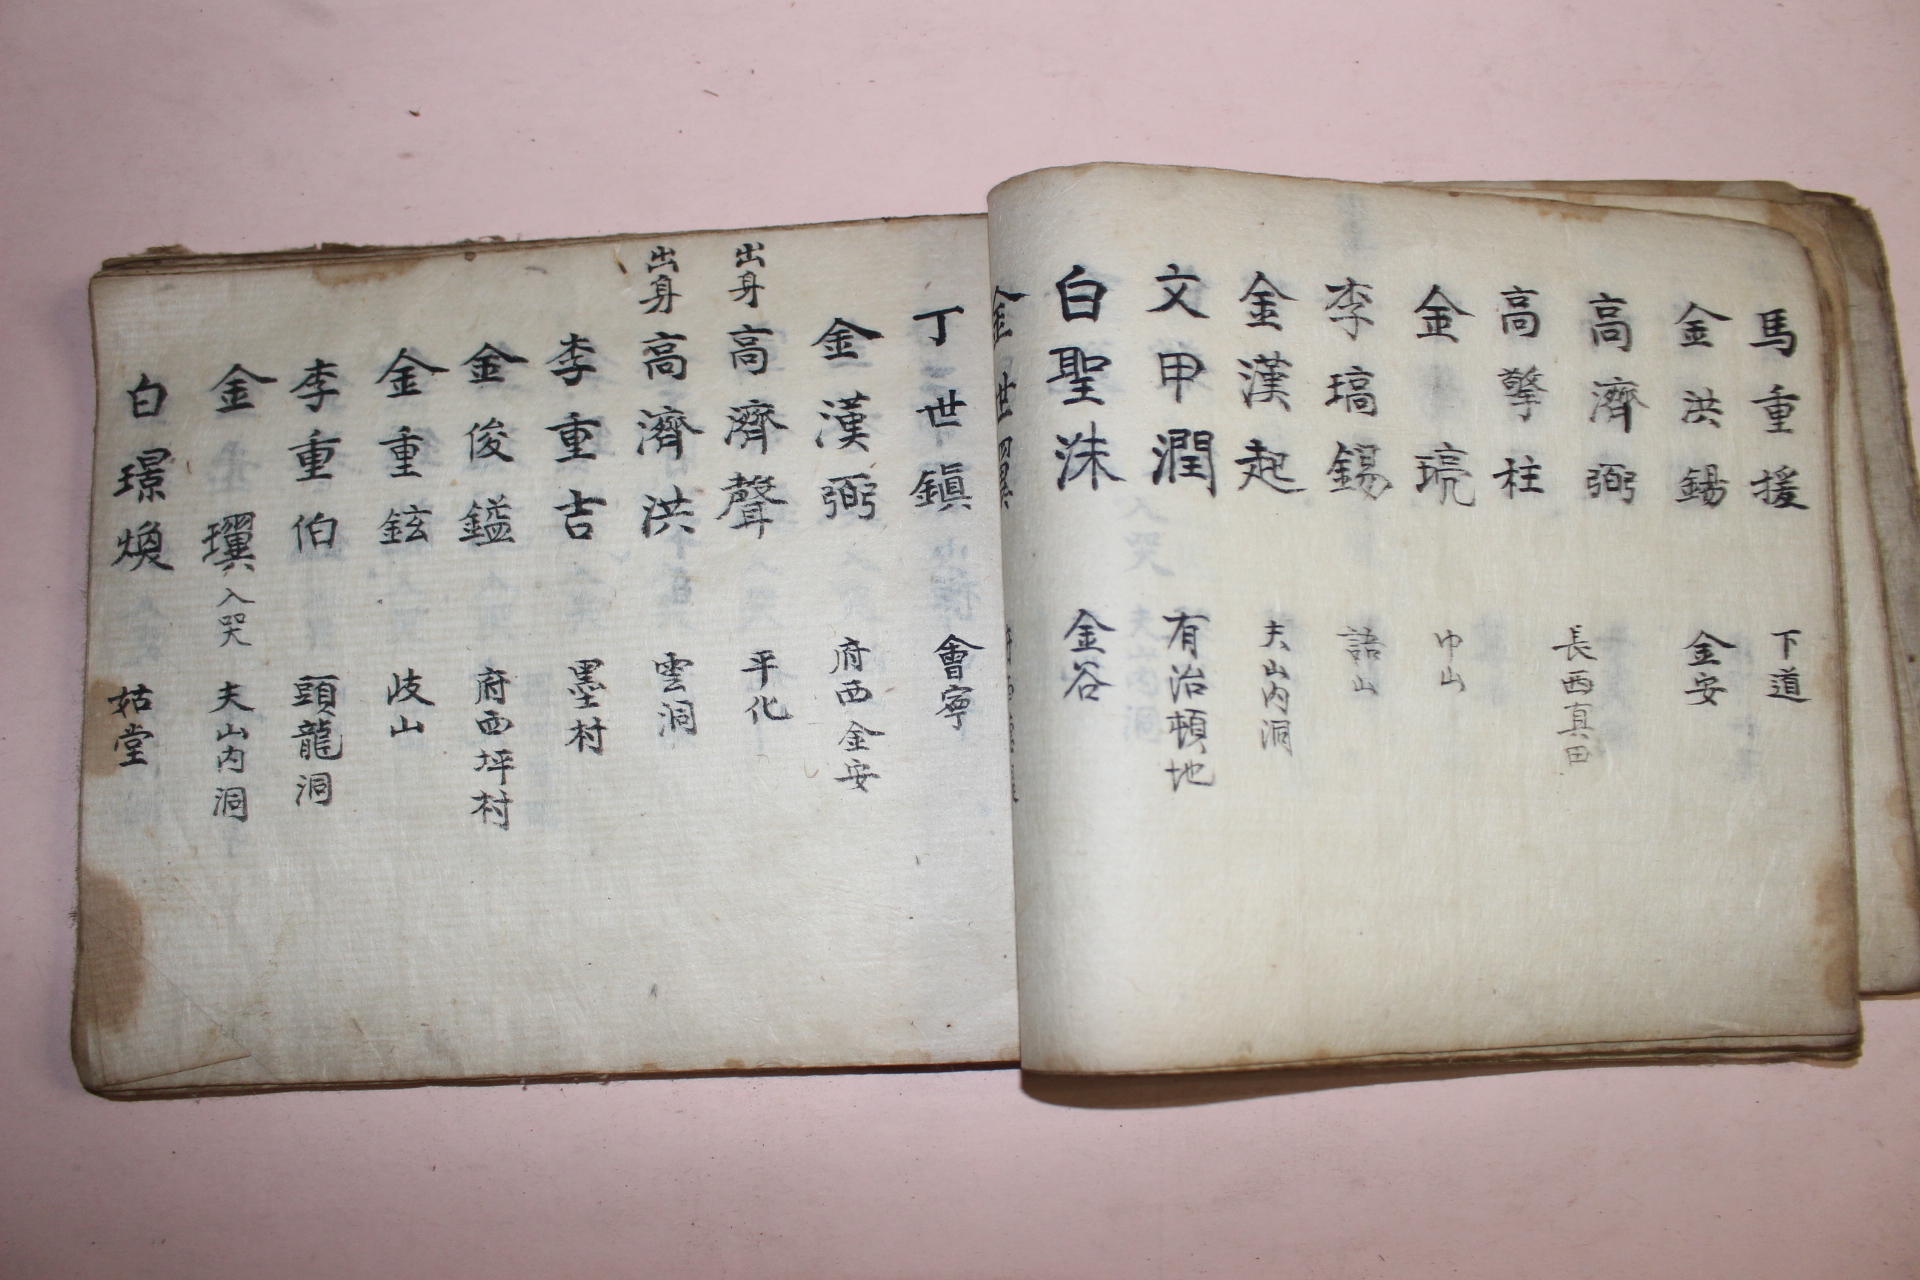 馬重援 下道
金洪錫 金安
高濟弼 長西真田
高擎柱
金琓 巾山
李塙錫 語山
金漢起 夫山內洞
文甲潤 有治頓地
白聖洙 金谷
金世
丁世鎭 會寧
金漢弼 府西金安
出身 高濟聲 平化
出身 高濟洪 雲洞
李重吉 墨村
金俊鎰 府西坪村
金重鉉 岐山
李重伯 頭龍洞
金瓘 入哭 夫山內洞
白璟煥 姑堂